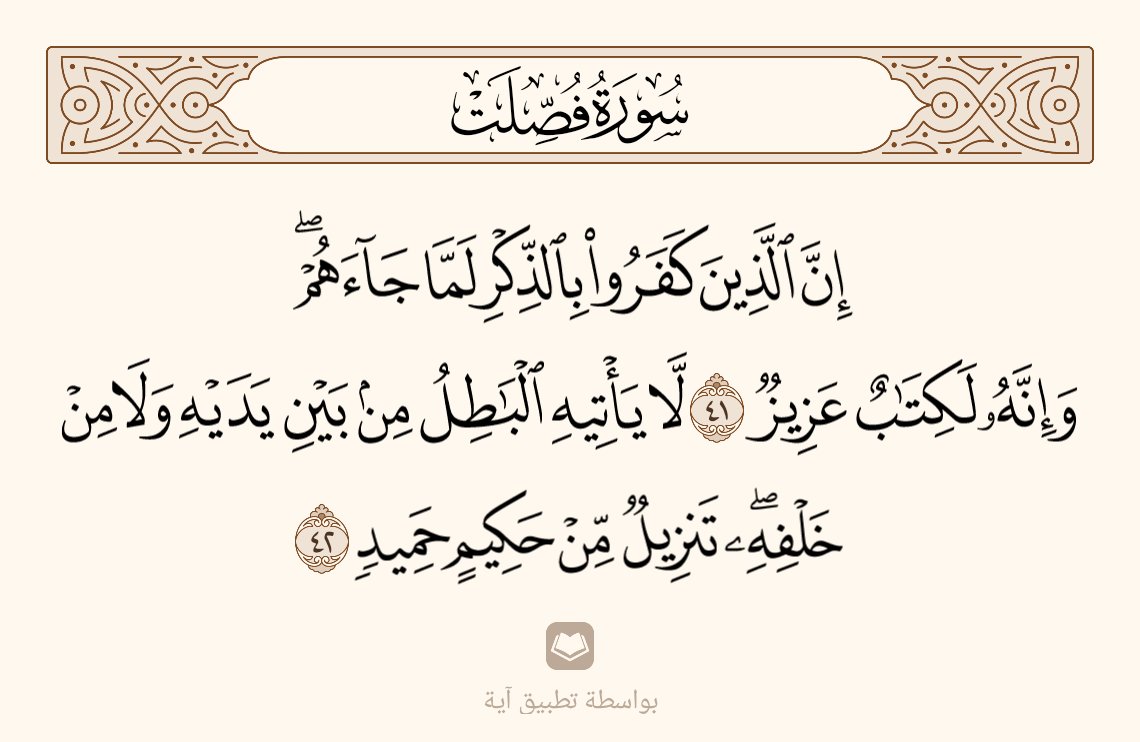 سُورَةُ فُصِّلَتْ
إِنَّ ٱلَّذِينَ كَفَرُوا۟ بِٱلذِّكْرِ لَمَّا جَآءَهُمْ ۖ
وَإِنَّهُۥ لَكِتَـٰبٌ عَزِيزٌ ٤١ لَّا يَأْتِيهِ ٱلْبَـٰطِلُ مِنۢ بَيْنِ يَدَيْهِ وَلَا مِنْ
خَلْفِهِۦ ۖ تَنزِيلٌ مِّنْ حَكِيمٍ حَمِيدٍ ٤٢
بواسطة تطبيق آية